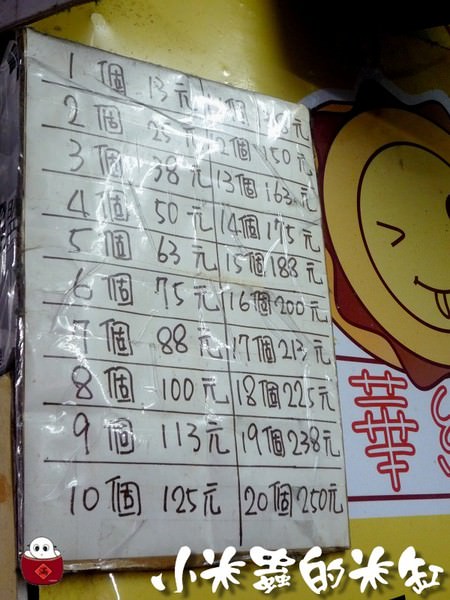 1個 13元
2個 25元
3個 38元
4個 50元
5個 63元
6個 75元
7個 88元
8個 100元
9個 113元
10個 125元
個 138元
12個 150元
13個 163元
14個 175元
15個 188元
16個 200元
17個 213元
18個 225元
19個 238元
20個 250元
華
小米蟲的米缸